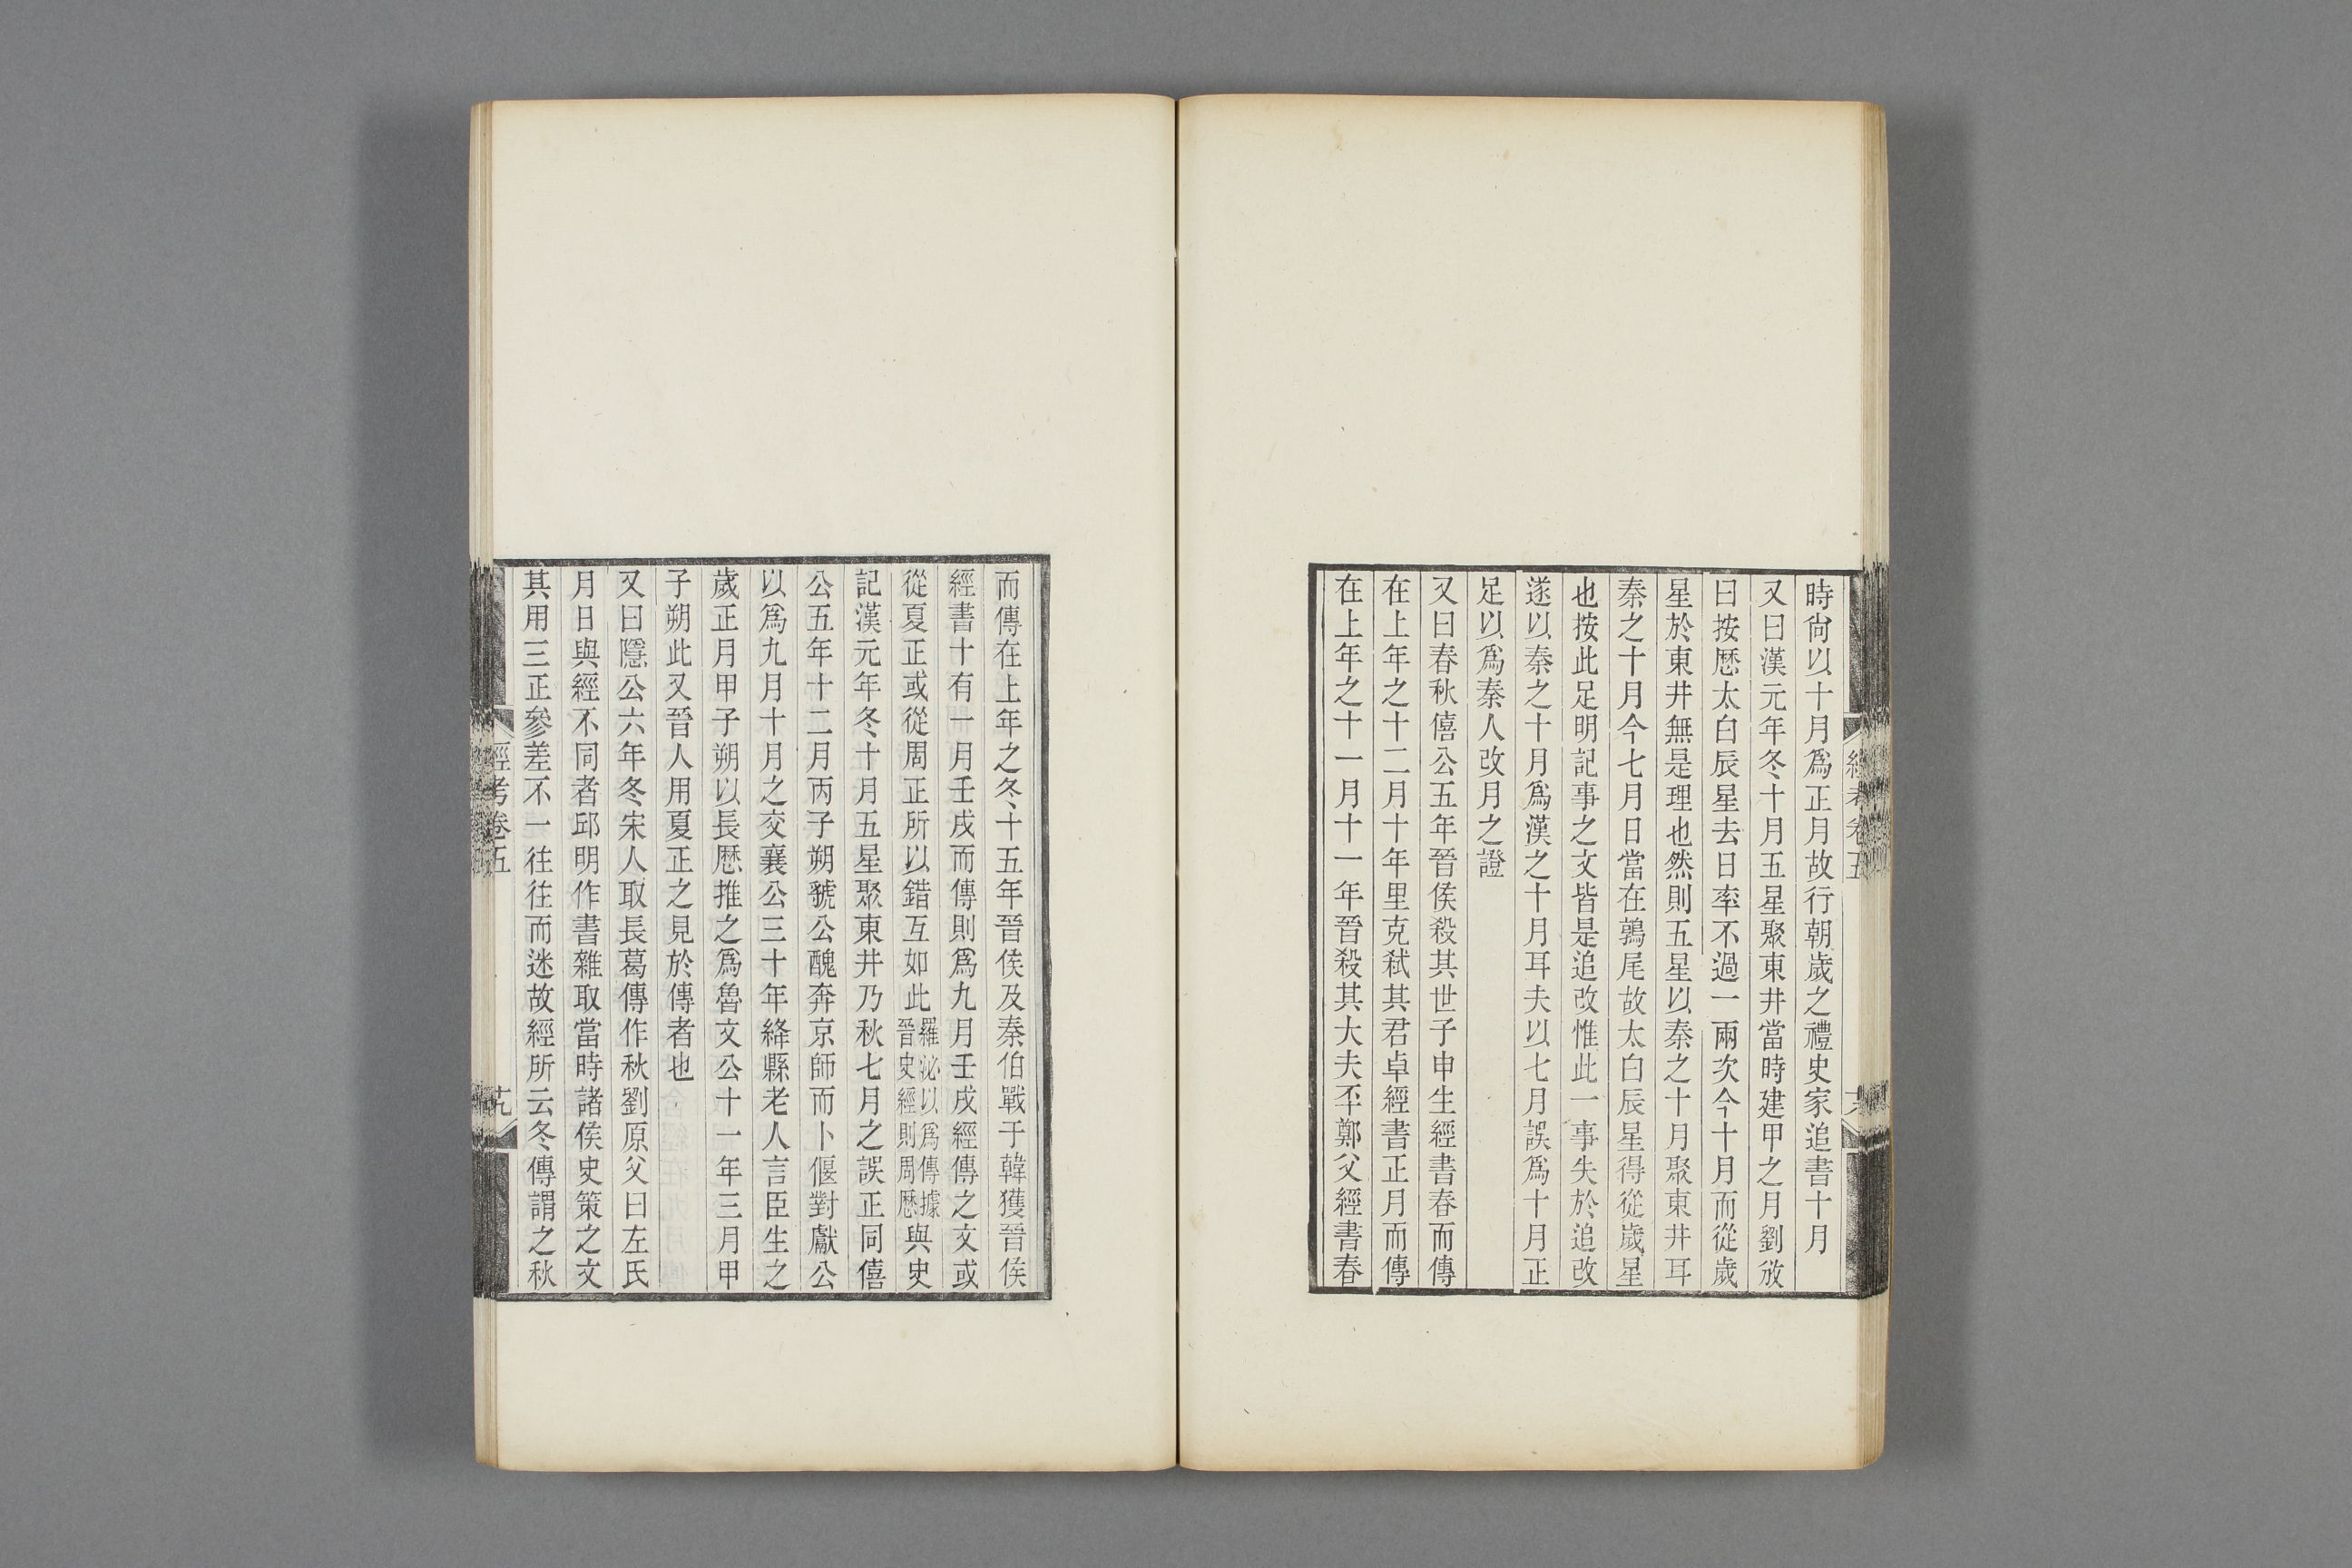 時尙以十月爲正月故行朝歲之禮史家追書十月
又曰漢元年冬十月五星聚東井當時建甲之月劉攽
曰按歷太白辰星去日率不過一兩次今十月而從歲
星於東井無是理也然則五星以秦之十月聚東井耳
秦之十月今七月日當在鶉尾故太白辰星得從歲星
也按此足明記事之文皆是追改惟此一事失於追改
遂以秦之十月爲漢之十月耳夫以七月誤爲十月正
足以爲秦人改月之證
又曰春秋僖公五年晉侯殺其世子申生經書春而傳
在上年之十二月十年里克弒其君卓經書正月而傳
在上年之十一月十一年晉殺其大夫丕鄭父經書春
經考卷五
而傳在上年之冬十五年晉侯及秦伯戰于韓獲晉侯
經書十有一月壬戌而傳則爲九月壬戌經傳之文或
從夏正或從周正所以錯互如此羅泌以爲傳據晉史經則周歷與史
記漢元年冬十月五星聚東井乃秋七月之誤正同僖
公五年十二月丙子朔虢公醜奔京師而卜偃對獻公
以爲九月十月之交襄公三十年絳縣老人言臣生之
歲正月甲子朔以長歷推之爲魯文公十一年三月甲
子朔此又晉人用夏正之見於傳者也
又曰隱公六年冬宋人取長葛傳作秋劉原父曰左氏
月日與經不同者邱明作書雜取當時諸侯史策之文
其用三正參差不一往往而迷故經所云冬傳謂之秋
經考卷五
十九